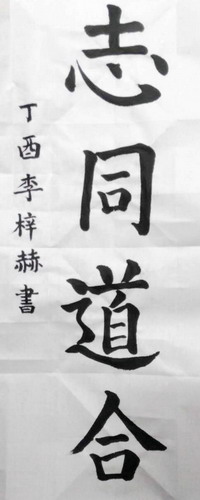 志同道合
丁酉李梓赫書